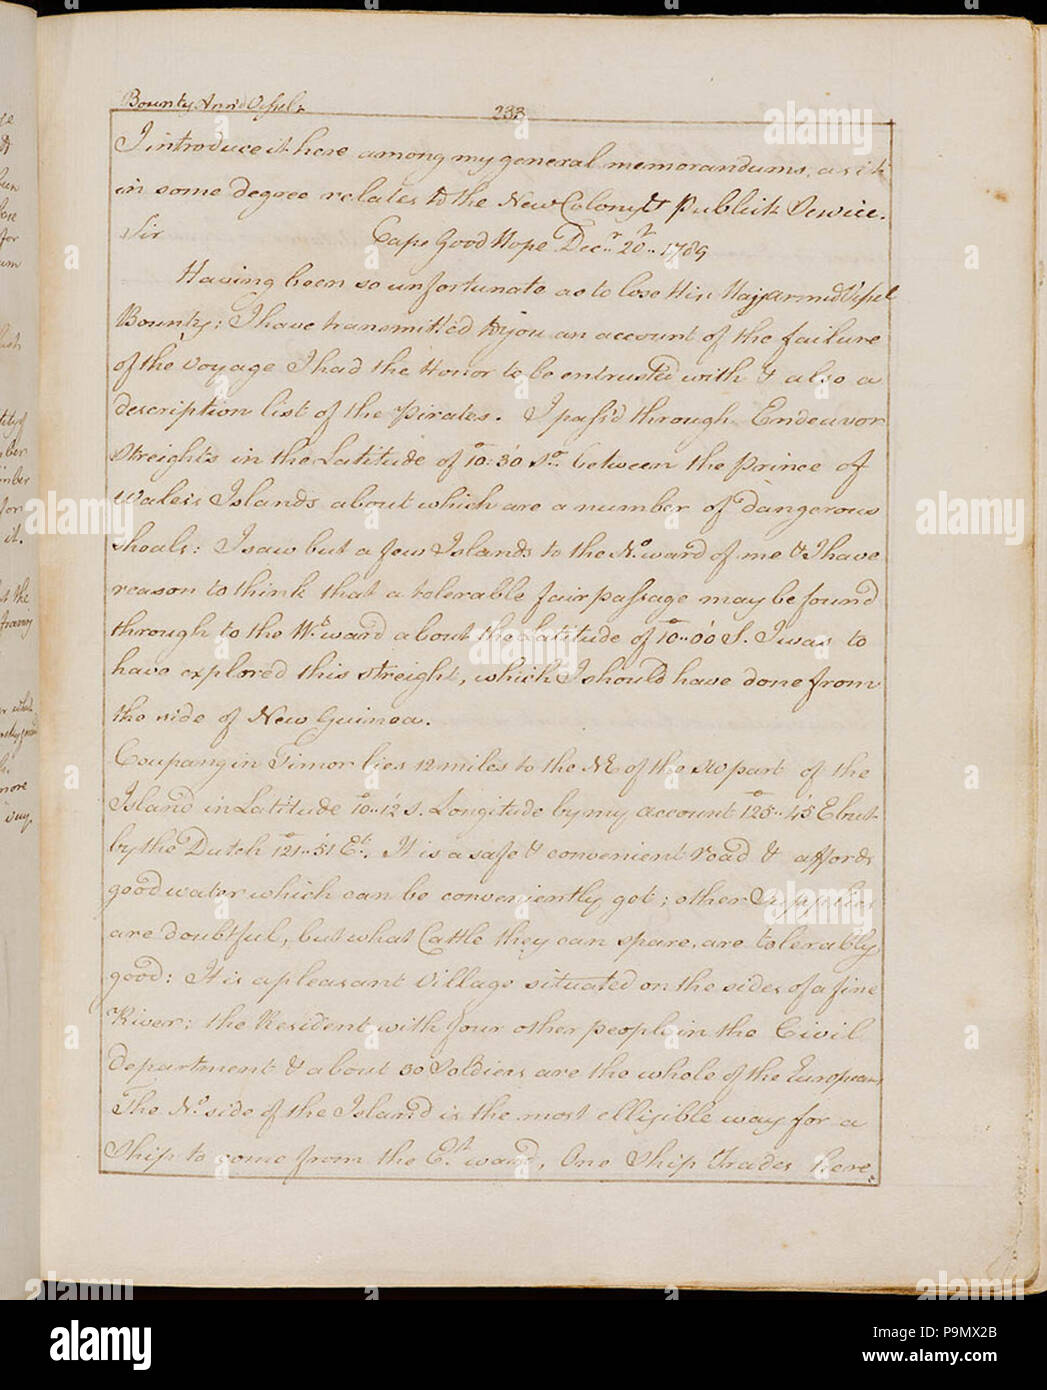 Bounty Arm'd Vessel.
233
I introduce it here among my general memorandums, as it
in some degree relates to the New Colony & Publick Service.
Sir Cape Good Hope Decr. 20th.. 1789
Having been so unfortunate as to lose His Majy armed Vessel
Bounty: I have transmitted to you an account of the failure
of the voyage I had the Honor to be entrusted with & also a
description list of the Pirates. I pass'd through Endeavor
Streights in the Latitude of 10°:30' So. between the Prince of
Wales's Islands about which are a number of dangerous
Shoals: I saw but a few Islands to the No.ward of me & I have
reason to think that a tolerable fair passage may be found
through to the Wt.ward about the Latitude of 10°..00' S. I was to
have explored this streight, which I should have done from
the side of New Guinea.
Coupang in Timor lies 12 miles to the NE of the SW part of the
Island in Latitude 10°..12' S. Longitude by my account 125°..45' E but
by the Dutch 121°..51' Et. It is a safe & convenient road & affords
good water which can be conveniently got; other Supplies
are doubtful, but what Cattle they can spare, are tolerably
good: It is a pleasant Village situated on the sides of a fine
River: the Resident with four other people in the Civil
department & about 30 Soldiers are the whole of the Europeans
The No. side of the Island is the most elligible way for a
Ship to come from the Et.ward, One Ship Trades here.
it.
the
more
alamy
alamy
Image ID: P9MX2B
www.alamy.com